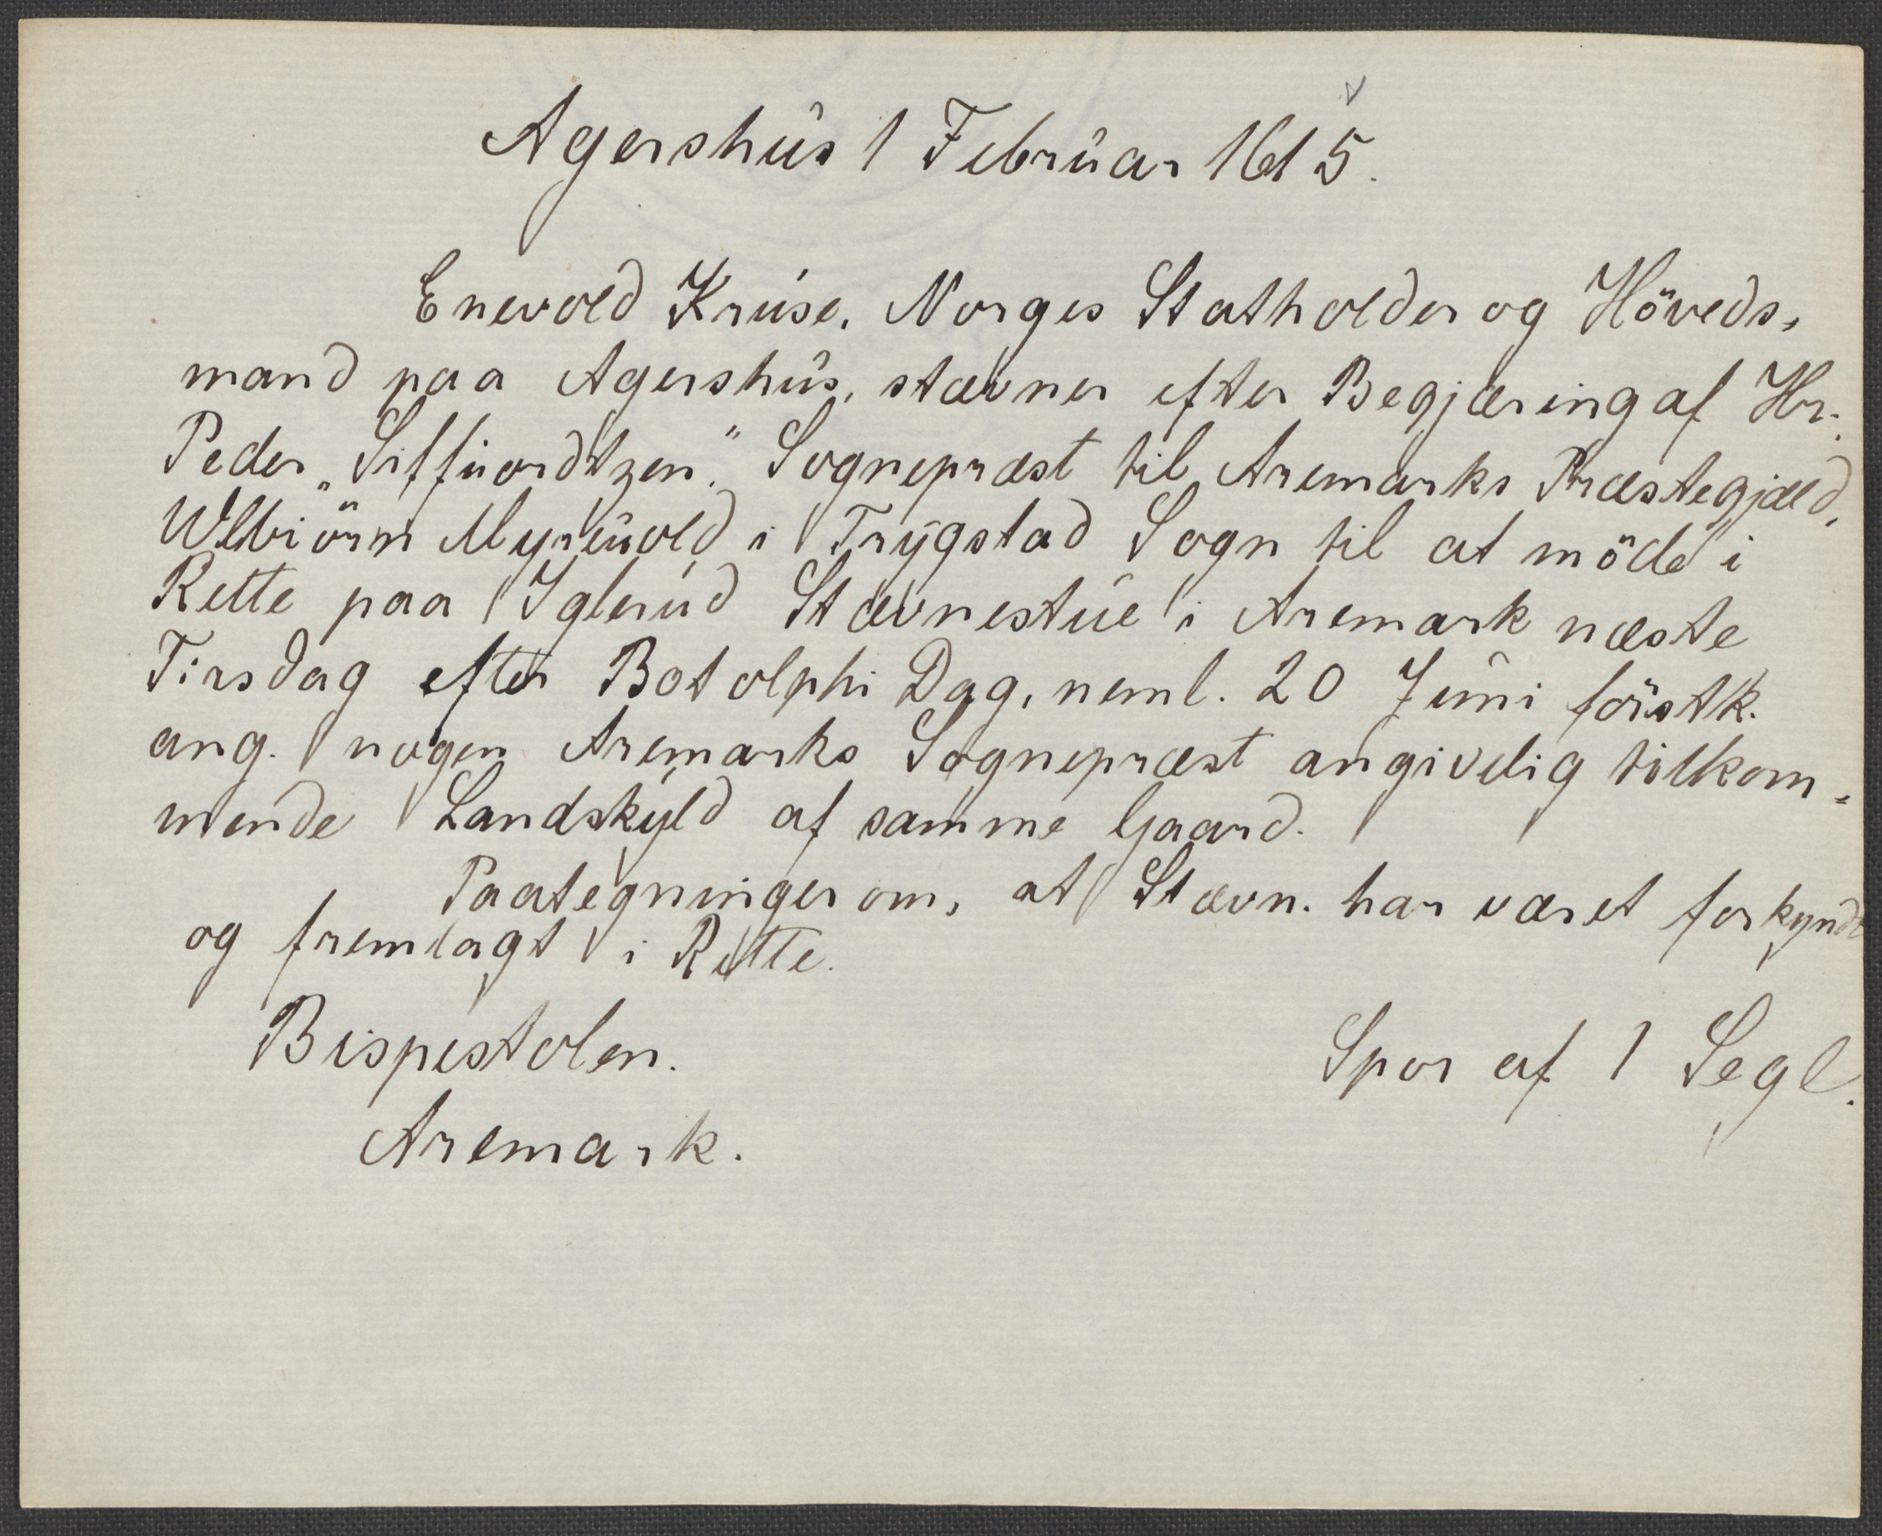 Agershús 1 Februar 1615.
Enevold Kruse, Norges Statholder og Höveds,
mand paa Agershus, stævner efter Begjæring af Hr.
Peder „Siffuordtzen," Sognepræst til Aremarks Præstegjæld,
Wlbiörn Myruold i Trygstad Sogn til at möde i
Rette paa Iglerud Stævnestue i Aremark næste
Tirsdag efter Botolphi Dag, neml. 20 Juni förstk.
ang. nogen Aremarks Sognepræst angivelig tilkom-
mende Landskyld af samme Gaard.
Paategninger om, at Stævn. har været forkyndt
og fremlagt i Rette.
Bispestolen.
Spor af 1 Segl.
Aremark.